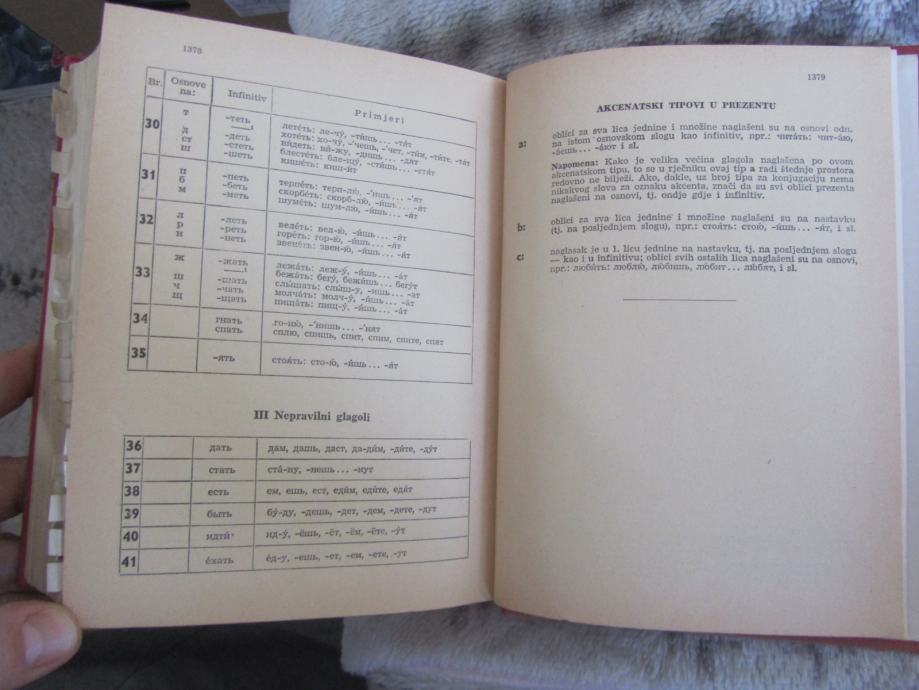 1378
Br. Osnove na: Infinitiv Primjeri
30 т -теть летéть: ле-чý, -тúшь... -тя́т
хотéть: хо-чý, -'чешь, -'чет, -тúм, -тúте, -тя́т
д -деть вúдеть: вú-жу, -дишь... -дят
ст -стеть блестéть: бле-щý, -стúшь... -стя́т
ш -шеть кишéть: киш-úт
31 п -петь терпéть: терп-лю́, -'ишь... -'ят
б -беть скорбéть: скорб-лю́, -úшь... -я́т
м -меть шумéть: шум-лю́, -úшь... -я́т
32 л -леть велéть: вел-ю́, -úшь... -я́т
р -реть горéть: гор-ю́, -úшь... -я́т
н -неть звенéть: звен-ю́, -úшь... -я́т
33 ж -жать лежáть: леж-ý, -úшь... -áт
бежáть: бегý, бежúшь... бегýт
ш -шать слы́шать: слы́ш-у, -ишь... -ат
ч -чать молчáть: молч-ý, -úшь... -áт
щ -щать пищáть: пищ-ý, -úшь... -áт
34 гнать го-ню́, -'нишь... -'нят
спать сплю, спишь, спит, спим, спите, спят
35 -ять стоя́ть: сто-ю́, -úшь... -я́т
III Nepravilni glagoli
36 дать дам, дашь, даст, да-дúм, -дúте, -дýт
37 стать стá-ну, -нешь... -нут
38 есть ем, ешь, ест, едúм, едúте, едя́т
39 быть бý-ду, -дешь, -дет, -дем, -дете, -дут
40 идтú ид-ý, -ёшь, -ёт, -ём, -ёте, -ýт
41 éхать éд-у, -ешь, -ет, -ем, -ете, -ут
1379
AKCENATSKI TIPOVI U PREZENTU
a: oblici za sva lica jednine i množine naglašeni su na osnovi odn.
na istom osnovskom slogu kao infinitiv, npr.: читáть: чит-áю,
-áешь... -áют i sl.
Napomena: Kako je velika većina glagola naglašena po ovom
akcenatskom tipu, to se u rječniku ovaj tip a radi štednje prostora
redovno ne bilježi. Ako, dakle, uz broj tipa za konjugaciju nema
nikakvog slova za oznaku akcenta, znači da su svi oblici prezenta
naglašeni na osnovi, tj. ondje gdje i infinitiv.
b: oblici za sva lica jednine i množine naglašeni su na nastavku
(tj. na posljednjem slogu), npr.: стоя́ть: стою́, -úшь... -я́т, i sl.
c: naglasak je u 1. licu jednine na nastavku, tj. na posljednjem slogu
— kao i u infinitivu; oblici svih ostalih lica naglašeni su na osnovi,
npr.: любúть: люблю́, лю́бишь, лю́бит... лю́бят, i sl.